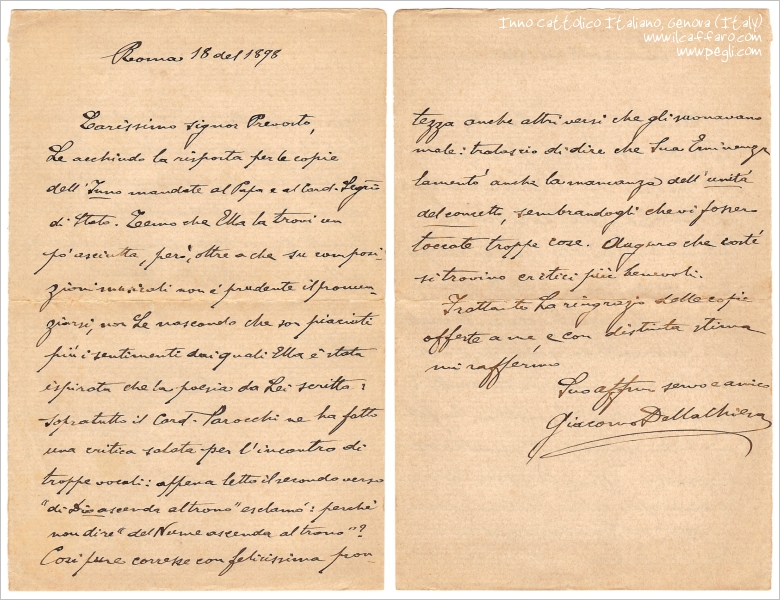 Inno Cattolico Italiano, Genova (Italy)
www.ilcaffaro.com
www.pegli.com
Roma 18 del 1898
Carissimo Signor Prevosto,
Le acchiudo la risposta per le copie
dell'Inno mandate al Papa e al Card. Segrio
di Stato. Temo che Ella la trovi un
pò asciutta, però, oltre a che su composi-
zioni musicali non è prudente il pronun-
ziarsi, non Le nascondo che son piaciuti
più i sentimenti dai quali Ella è stata
ispirata che la poesia da Lei scritta:
sopratutto il Card. Parocchi ne ha fatto
una critica salata per l'incontro di
troppe vocali: appena letto il secondo verso
"di Dio ascenda al trono" esclamò: perchè
non dire "del Nume ascenda al trono"?
Così pure corresse con felicissima pron-
tezza anche altri versi che gli suonavano
male: tralascio di dire che Sua Eminenza
lamentò anche la mancanza dell'unità
del concetto, sembrandogli che vi fossero
toccate troppe cose. Auguro che costì
si trovino critici più benevoli.
Frattanto La ringrazio delle copie
offerte a me, e con distinta stima
mi raffermo
Suo affmo servo e amico
Giacomo Della Chiesa